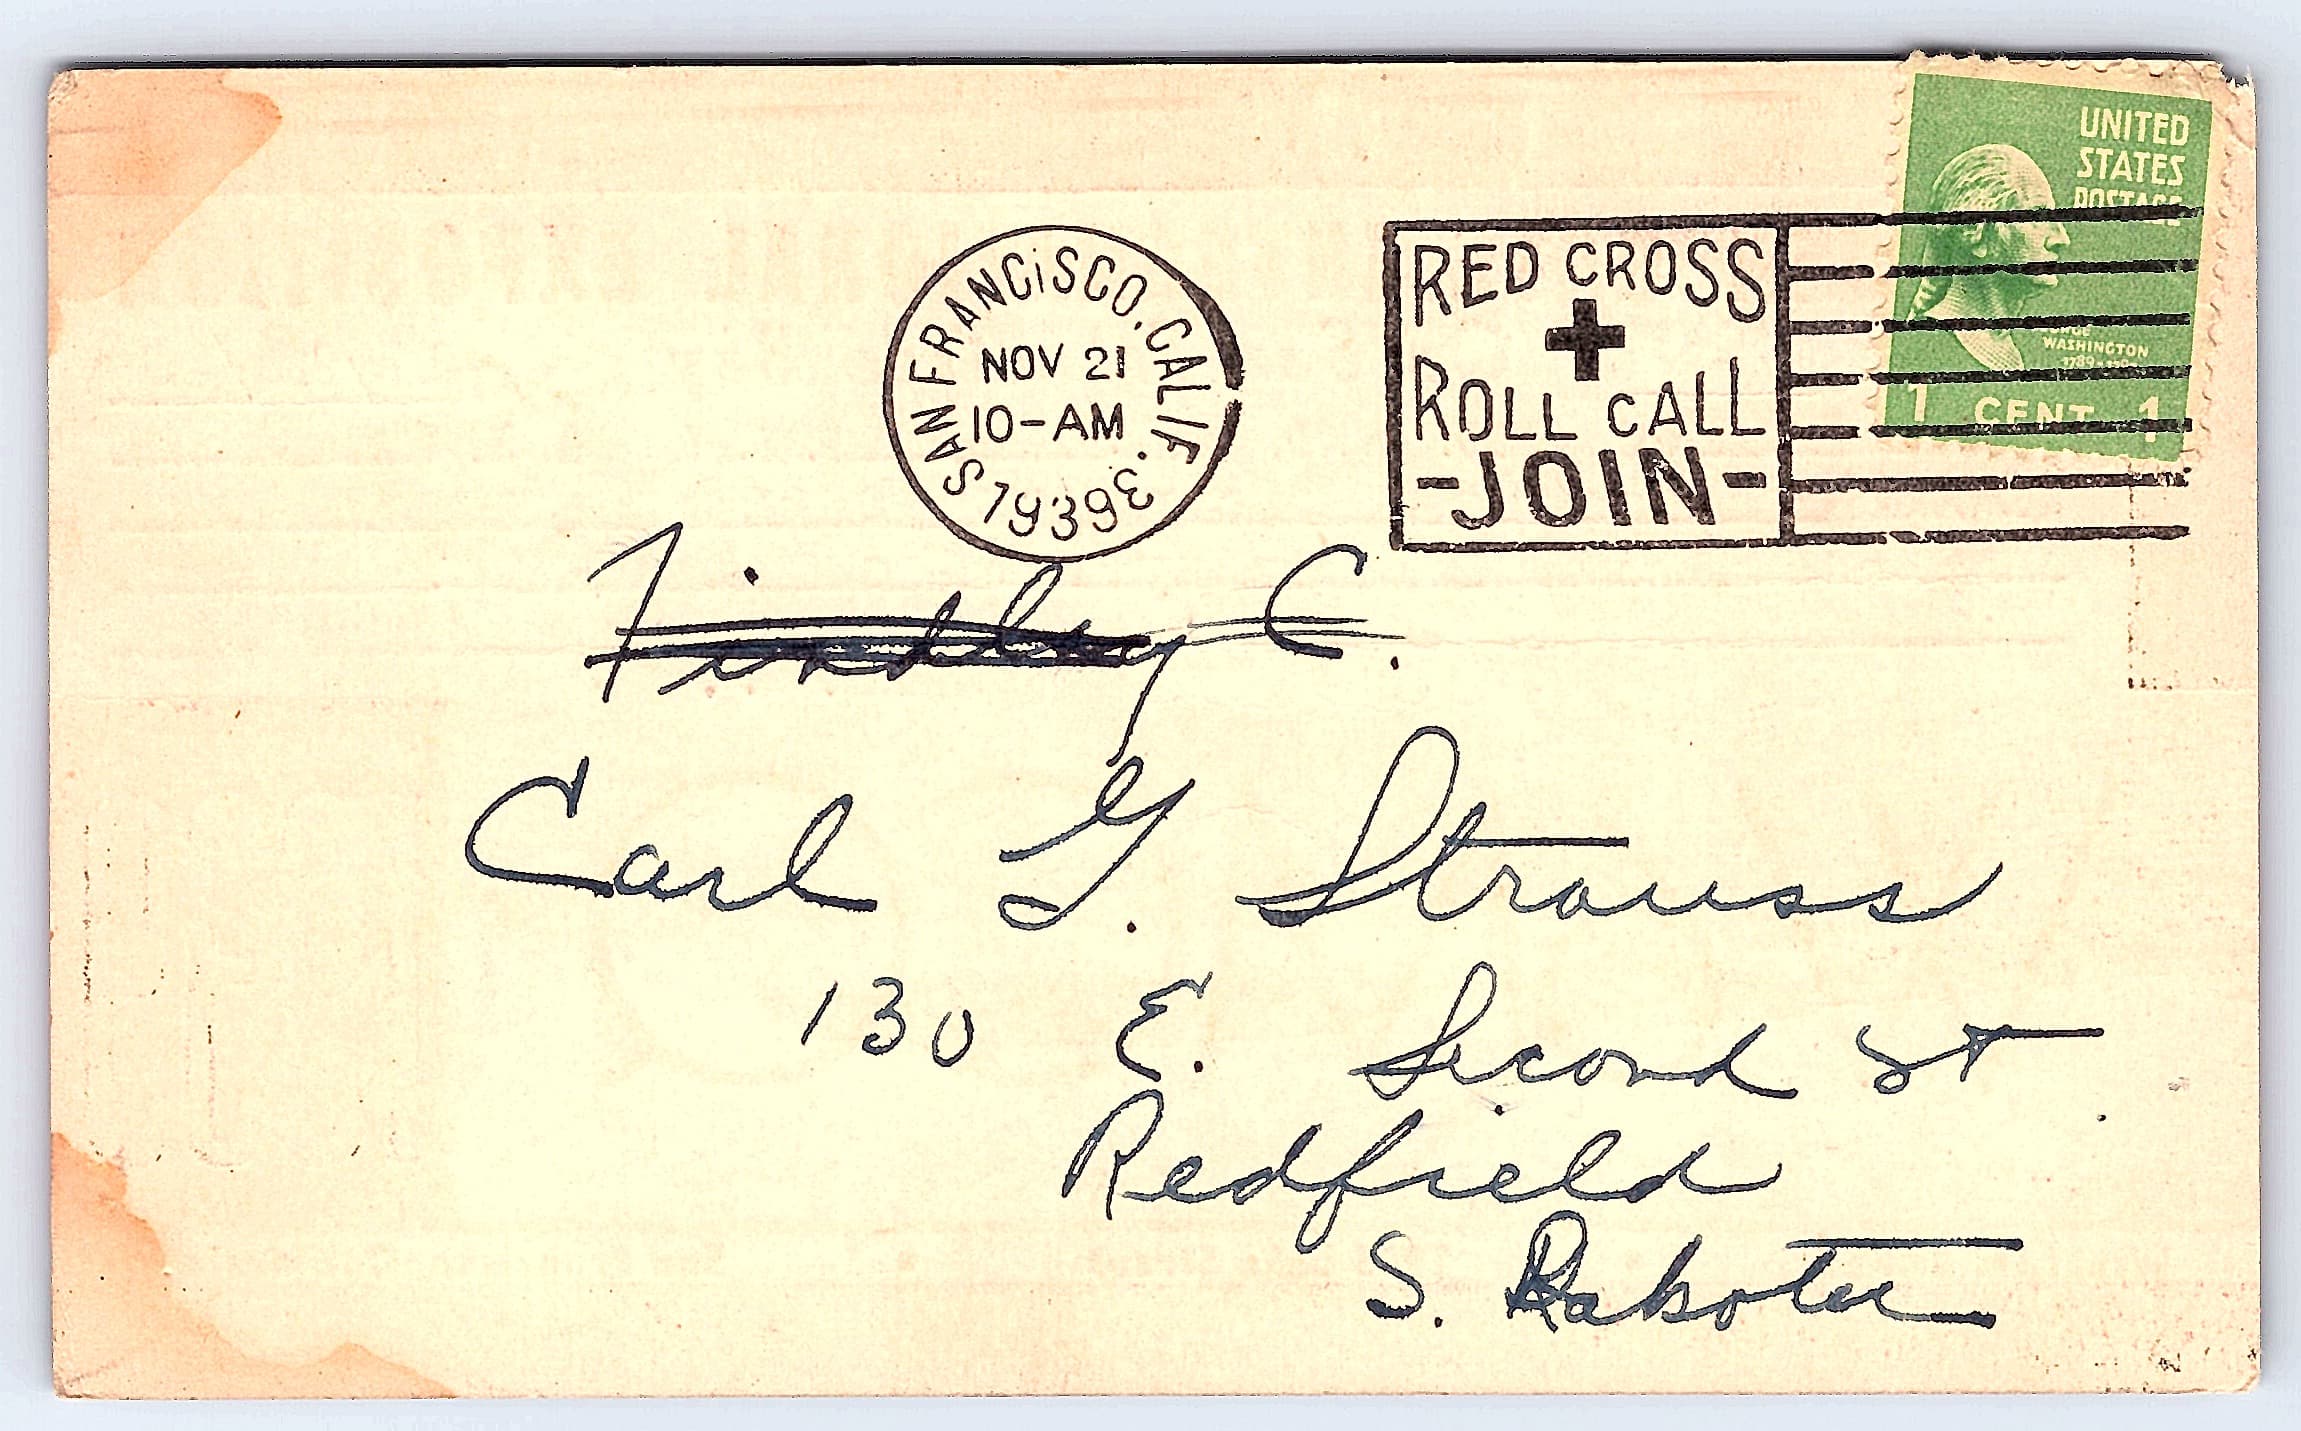 SAN FRANCISCO, CALIF.
NOV 21
10-AM
1939
RED CROSS
ROLL CALL
-JOIN-
UNITED
STATES
POSTAGE
WASHINGTON
1 CENT 1
Findley C.
Carl G. Strauss
130 E. Second St
Redfield
S. Dakota